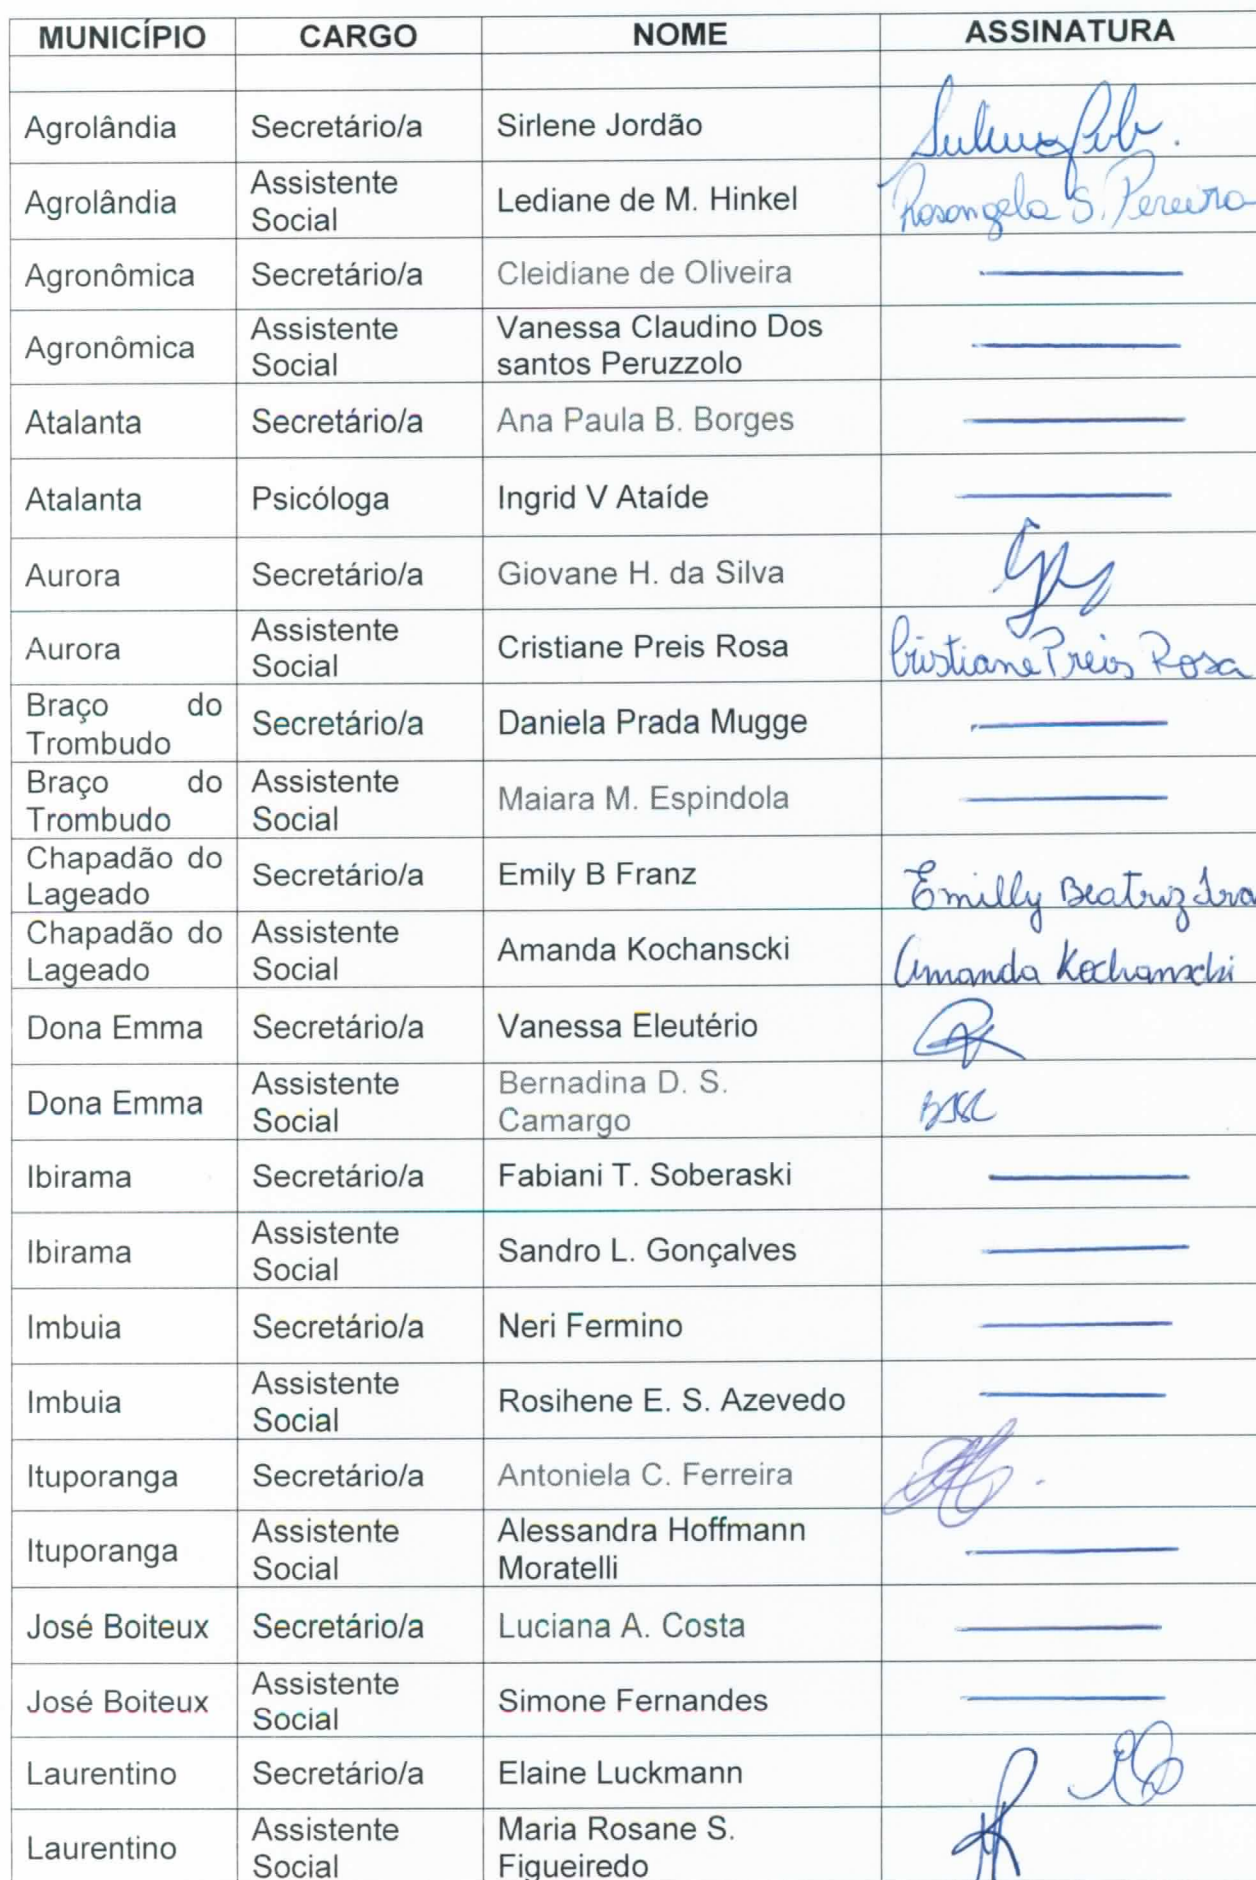 MUNICÍPIO CARGO NOME ASSINATURA
Agrolândia Secretário/a Sirlene Jordão
Agrolândia Assistente Social Lediane de M. Hinkel Rosangela S. Pereira
Agronômica Secretário/a Cleidiane de Oliveira
Agronômica Assistente Social Vanessa Claudino Dos santos Peruzzolo
Atalanta Secretário/a Ana Paula B. Borges
Atalanta Psicóloga Ingrid V Ataíde
Aurora Secretário/a Giovane H. da Silva
Aurora Assistente Social Cristiane Preis Rosa Cristiane Preis Rosa
Braço do Trombudo Secretário/a Daniela Prada Mugge
Braço do Trombudo Assistente Social Maiara M. Espindola
Chapadão do Lageado Secretário/a Emily B Franz Emilly Beatriz
Chapadão do Lageado Assistente Social Amanda Kochanscki Amanda Kochanscki
Dona Emma Secretário/a Vanessa Eleutério
Dona Emma Assistente Social Bernadina D. S. Camargo
Ibirama Secretário/a Fabiani T. Soberaski
Ibirama Assistente Social Sandro L. Gonçalves
Imbuia Secretário/a Neri Fermino
Imbuia Assistente Social Rosihene E. S. Azevedo
Ituporanga Secretário/a Antoniela C. Ferreira
Ituporanga Assistente Social Alessandra Hoffmann Moratelli
José Boiteux Secretário/a Luciana A. Costa
José Boiteux Assistente Social Simone Fernandes
Laurentino Secretário/a Elaine Luckmann
Laurentino Assistente Social Maria Rosane S. Figueiredo